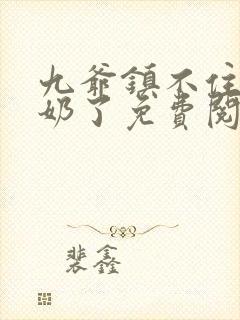 九爺鎮不住
奶了免費閱
裴鑫